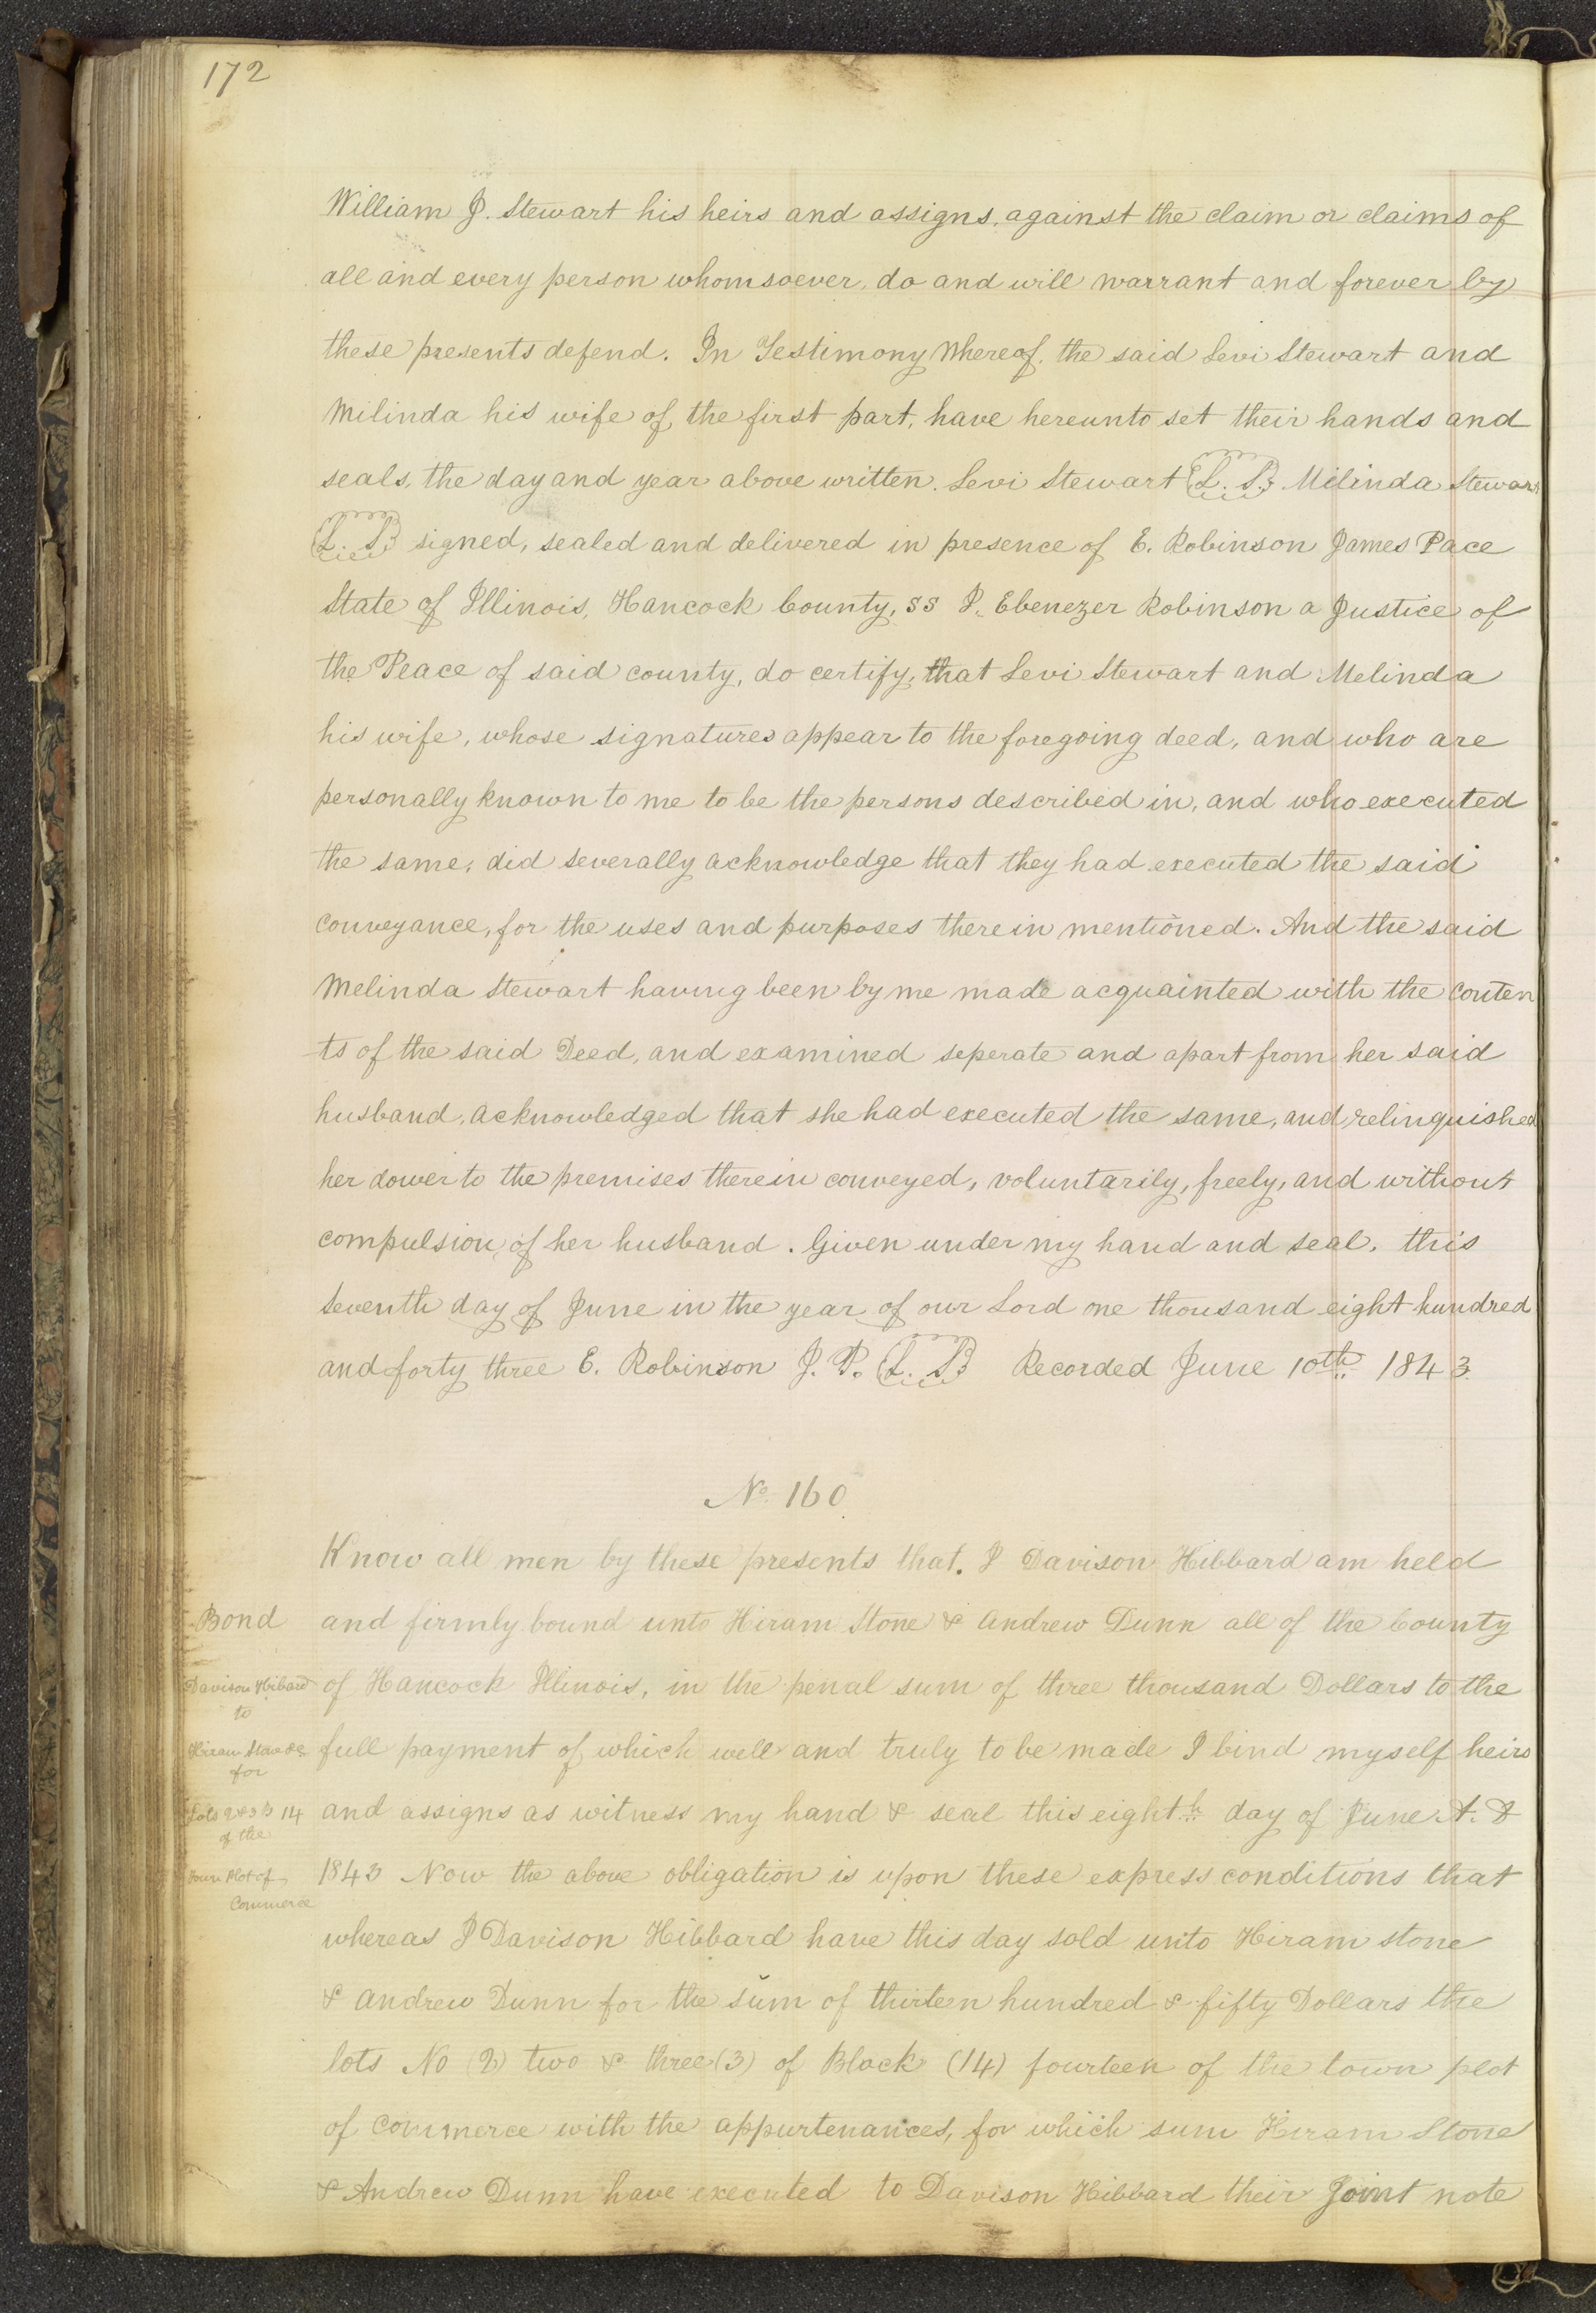 172
William J. Stewart his heirs and assigns, against the claim or claims of
all and every person whomsoever, do and will warrant and forever by
these presents defend. In Testimony Whereof, the said Levi Stewart and
Milinda his wife of the first part, have hereunto set their hands and
seals, the day and year above written. Levi Stewart L. S. Milinda Stewart
L. S. signed, sealed and delivered in presence of E. Robinson James Pace
State of Illinois, Hancock County, ss I. Ebenezer Robinson a Justice of
the Peace of said county, do certify, that Levi Stewart and Melinda
his wife, whose signatures appear to the foregoing deed, and who are
personally known to me to be the persons described in, and who executed
the same, did severally acknowledge that they had executed the said
conveyance, for the uses and purposes therein mentioned. And the said
Melinda Stewart having been by me made acquainted with the conten
ts of the said Deed, and examined seperate and apart from her said
husband, acknowledged that she had executed the same, and relinquished
her dower to the premises therein conveyed, voluntarily, freely, and without
compulsion of her husband. Given under my hand and seal, this
seventh day of June in the year of our Lord one thousand eight hundred
and forty three E. Robinson J. P. L. S. Recorded June 10th 1843.
No. 160
Know all men by these presents that. I Davison Hibbard am held
Bond
and firmly bound unto Hiram Stone & Andrew Dunn all of the County
Davison Hibard
of Hancock Illinois, in the penal sum of three thousand Dollars to the
to
Hiram Stone &c
full payment of which well and truly to be made I bind myself heirs
for
Lots 2 & 3 B 14
and assigns as witness my hand & seal this eighth day of June A. D
of the
Town Plot of
1843 Now the above obligation is upon these express conditions that
Commerce
whereas I Davison Hibbard have this day sold unto Hiram stone
& Andrew Dunn for the sum of thirteen hundred & fifty Dollars the
lots No (2) two & three (3) of Block (14) fourteen of the town plot
of Commerce with the appurtenances, for which sum Hiram Stone
& Andrew Dunn have executed to Davison Hibbard their Joint note